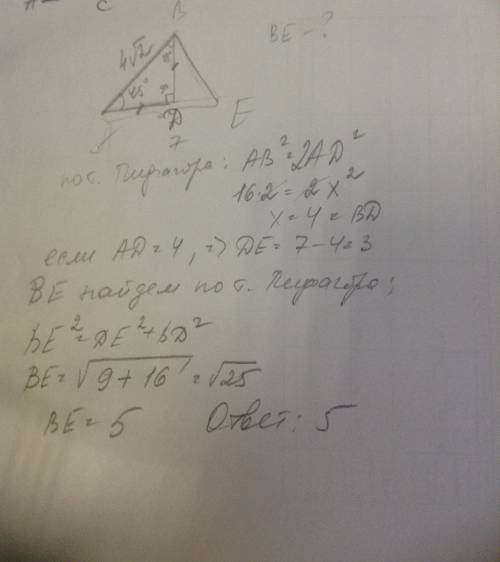 C
B
BE - ?
4√2
45°
D
E
7
по т. Пифагора: AB² = 2AD²
16·2 = 2x²
x = 4 = BD
если AD = 4, => DE = 7-4=3
BE найдем по т. Пифагора;
bE² = DE² + bD²
BE = √9 + 16 = √25
BE = 5 Ответ: 5